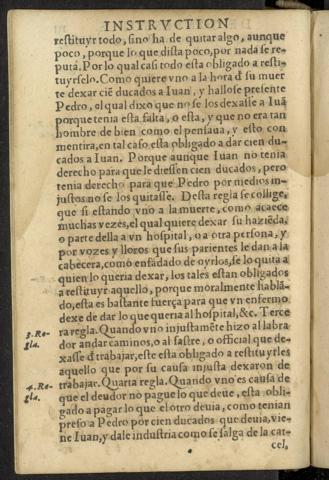 INSTRVCTION
restituyr todo, sino ha de quitar algo, aunque
poco, porque lo que dista poco, por nada se re-
puta. Por lo qual casi todo esta obligado a resti-
tuyrselo. Como quiere vno a la hora d̃ su muer
te dexar ciẽ ducados a Iuan, y hallose presente
Pedro, el qual dixo que no se los dexasse a Iuã
porque tenia esta falta, o esta, y que no era tan
hombre de bien como el pensaua, y esto con
mentira, en tal caso esta obligado a dar cien du-
cados a Iuan. Porque aunque Iuan no tenia
derecho para que le diessen cien ducados, pero
tenia derecho para que Pedro por medios in-
justos no se los quitasse. Desta regla se collige,
que si estando vno a la muerte, como acaece
muchas vezes, el qual quiere dexar su haziẽda,
o parte della a vn hospital, o a otra persona, y
por vozes y lloros que sus parientes le dan a la
cabecera, como enfadado de oyrlos, se lo quita a
quien lo queria dexar, los tales estan obligados
a restituyr aquello, porque moralmente hablã-
do, esta es bastante fuerça para que vn enfermo
dexe de dar lo que queria al hospital, &c. Terce
3. Re-
gla.
ra regla. Quando vno injustamẽte hizo al labra
dor andar caminos, o al sastre, o official que de-
xasse d̃ trabajar, este esta obligado a restituyrles
aquello que por su causa injusta dexaron de
4. Re-
gla.
trabajar. Quarta regla. Quando vno es causa de
que el deudor no pague lo que deue, esta obli-
gado a pagar lo que el otro deuia, como tenian
preso a Pedro por cien ducados que deuia, vie-
ne Iuan, y dale industria como se salga de la car-
cel,